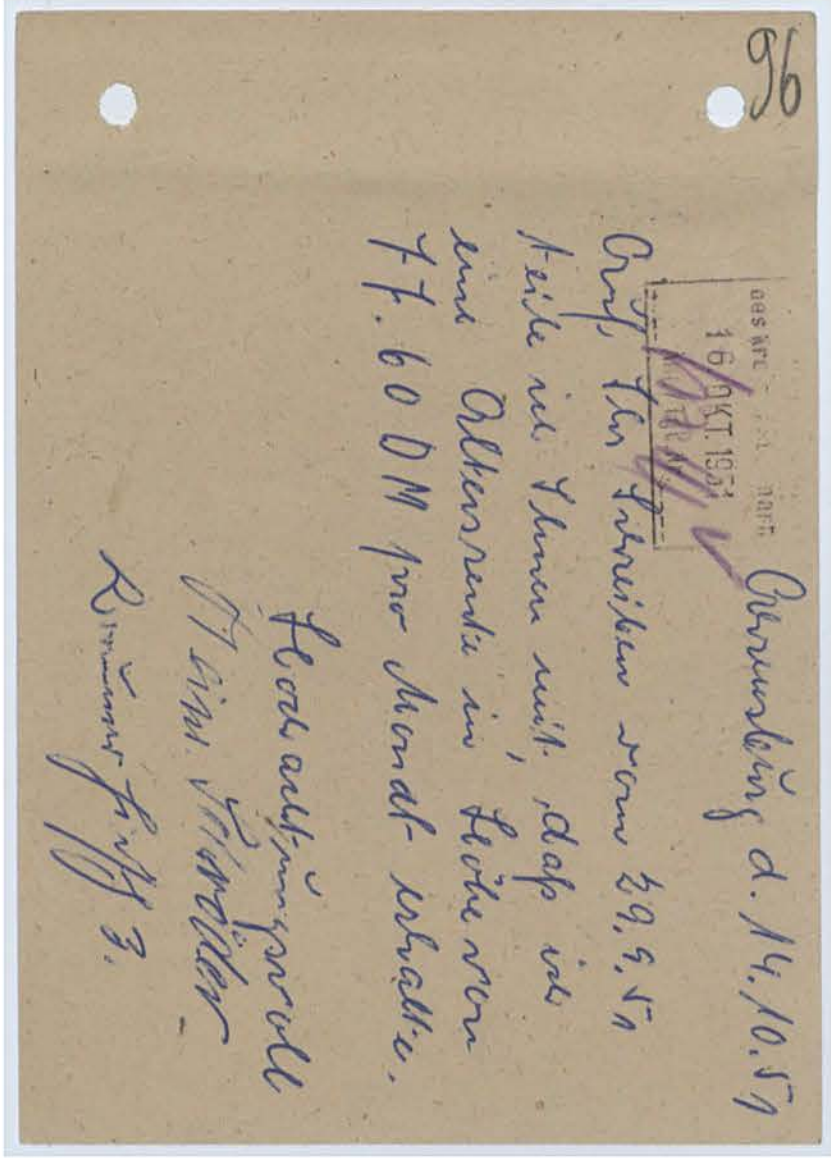 96
16 OKT. 1951
d. 14.10.51
Auf Ihr Schreiben vom 29.9.51
teile ich Ihnen mit, daß ich
eine Altersrente in Höhe von
77.60 DM pro Mondt erhalte.
Hochachtungsvoll
Schröder
3.